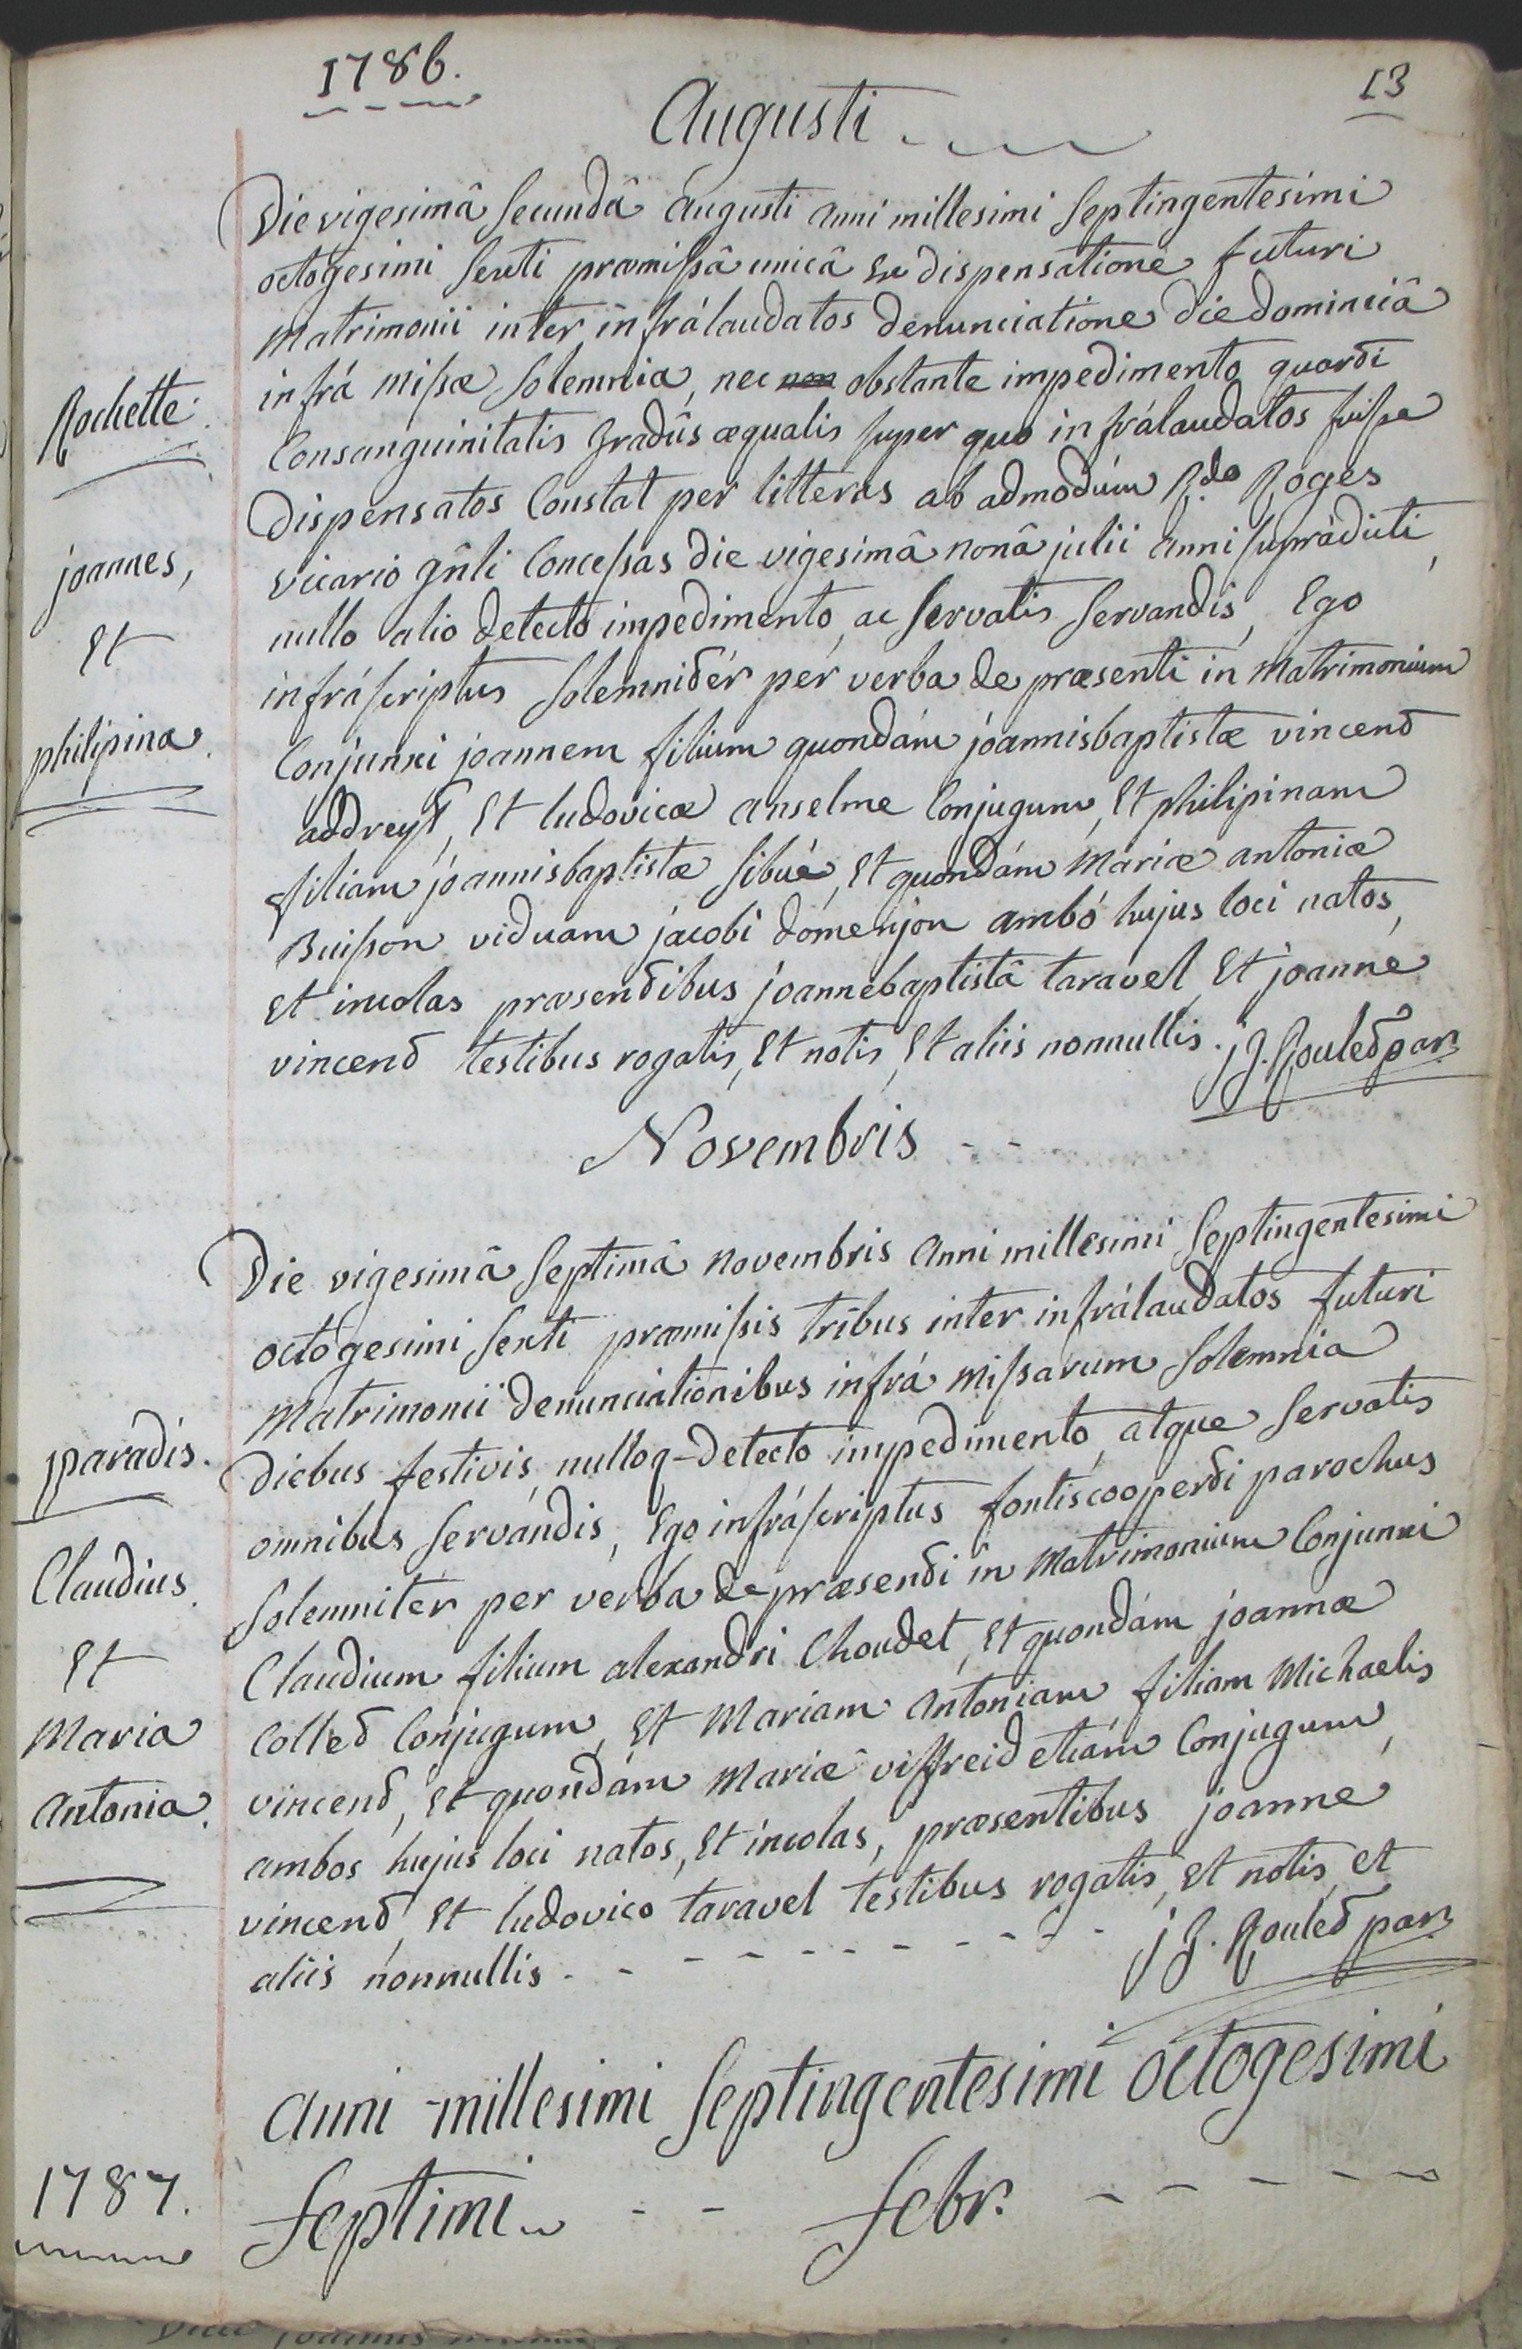 1786.
13
Augusti
Die vigesimâ secundâ augusti anni millesimi septingentesimi
octogesimi sexti præmissâ unicâ ex dispensatione futuri
matrimonii inter infrálaudatos denunciatione die dominicâ
infrá missæ solemnia, nec non obstante impedimento quarti
Consanguinitatis gradûs æqualis super quo infrálaudatos fuisse
dispensatos Constat per litteras ab admodúm Rdo Roges
vicario gñli Concessas die vigesimâ nonâ julii anni suprádicti,
nullo alio detecto impedimento, ac servatis servandis, Ego
infráscriptus solemnitér pér verba de præsenti in matrimonium
Conjunxi joannem filium quondám jóannisbaptistæ vincend
addreyt, Et ludovicæ anselme Conjugum, Et philipinam
filiam jóannisbaptistæ sibué, Et quondám mariæ antoniæ
Buisson viduam jacobi domenjon ambó hujus loci natos,
Et incolas præsentibus joannebaptistâ taravel, Et joanne
vincend testibus rogatis, Et notis, Et aliis nonnullis. j J. Rouled par.
Rochette.
joannes,
Et
philipina.
Novembris
Die vigesimâ septimâ novembris anni millesimi septingentesimi
octogesimi sexti præmissis tribus inter infrálaudatos futuri
matrimonii denunciationibus infrá missarum solemnia
diebus festivis, nulloq- detecto impedimento, atque servatis
omnibus servandis, Ego infráscriptus fontiscooperti parochus
solemnitér per verba de præsenti in matrimonium Conjunxi
Claudium filium alexandri Choudet, Et quondám joannæ
Colled Conjugum, Et Mariam antoniam filiam Michaelis
vincend, Et quondám Mariæ viffreid etiám Conjugum,
ambos hujus loci natos, Et incolas, præsentibus joanne
vincend, Et ludovico taravel testibus rogatis, Et notis, et
aliis nonnullis. j J. Rouled par.
paradis.
Claudius.
Et
Maria
antonia.
anni millesimi septingentesimi octogesimi
septimi febr.
1787.